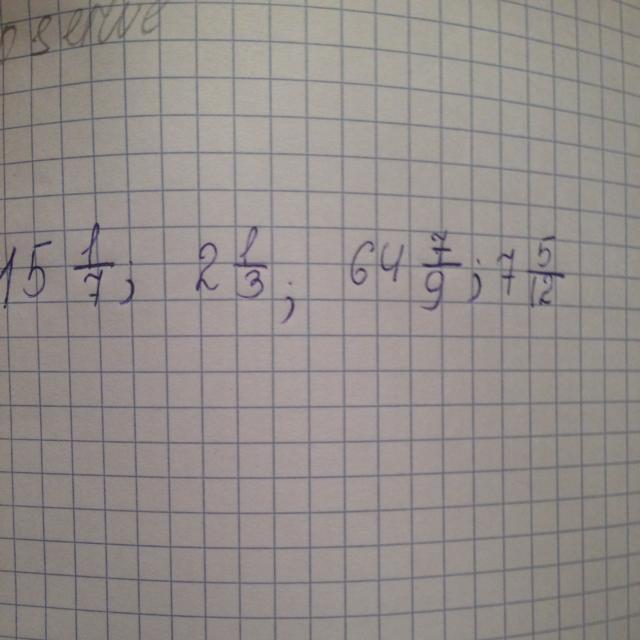 15 1/7; 2 1/3; 64 7/9; 7 5/12